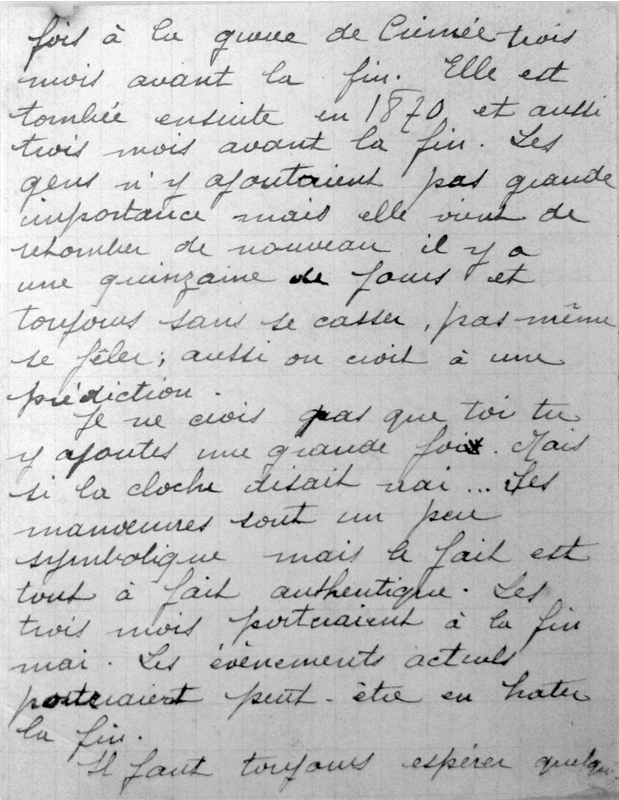 fois à la guerre de Crimée trois
mois avant la fin. Elle est
tombée ensuite en 1870 et aussi
trois mois avant la fin. Les
gens n'y ajoutaient pas grande
importance mais elle vient de
retomber de nouveau il y a
une quinzaine de jours et
toujours sans se casser, pas même
se fêler; aussi on croit à une
prédiction.
Je ne crois pas que toi tu
y ajoutes une grande foi. Mais
si la cloche disait vrai... Les
manœuvres sont un peu
symbolique mais le fait est
tout à fait authentique. Les
trois mois porteraient à la fin
mai. Les évènements actuels
porteraient peut-être en hater
la fin.
Il faut toujours espérer quelqu